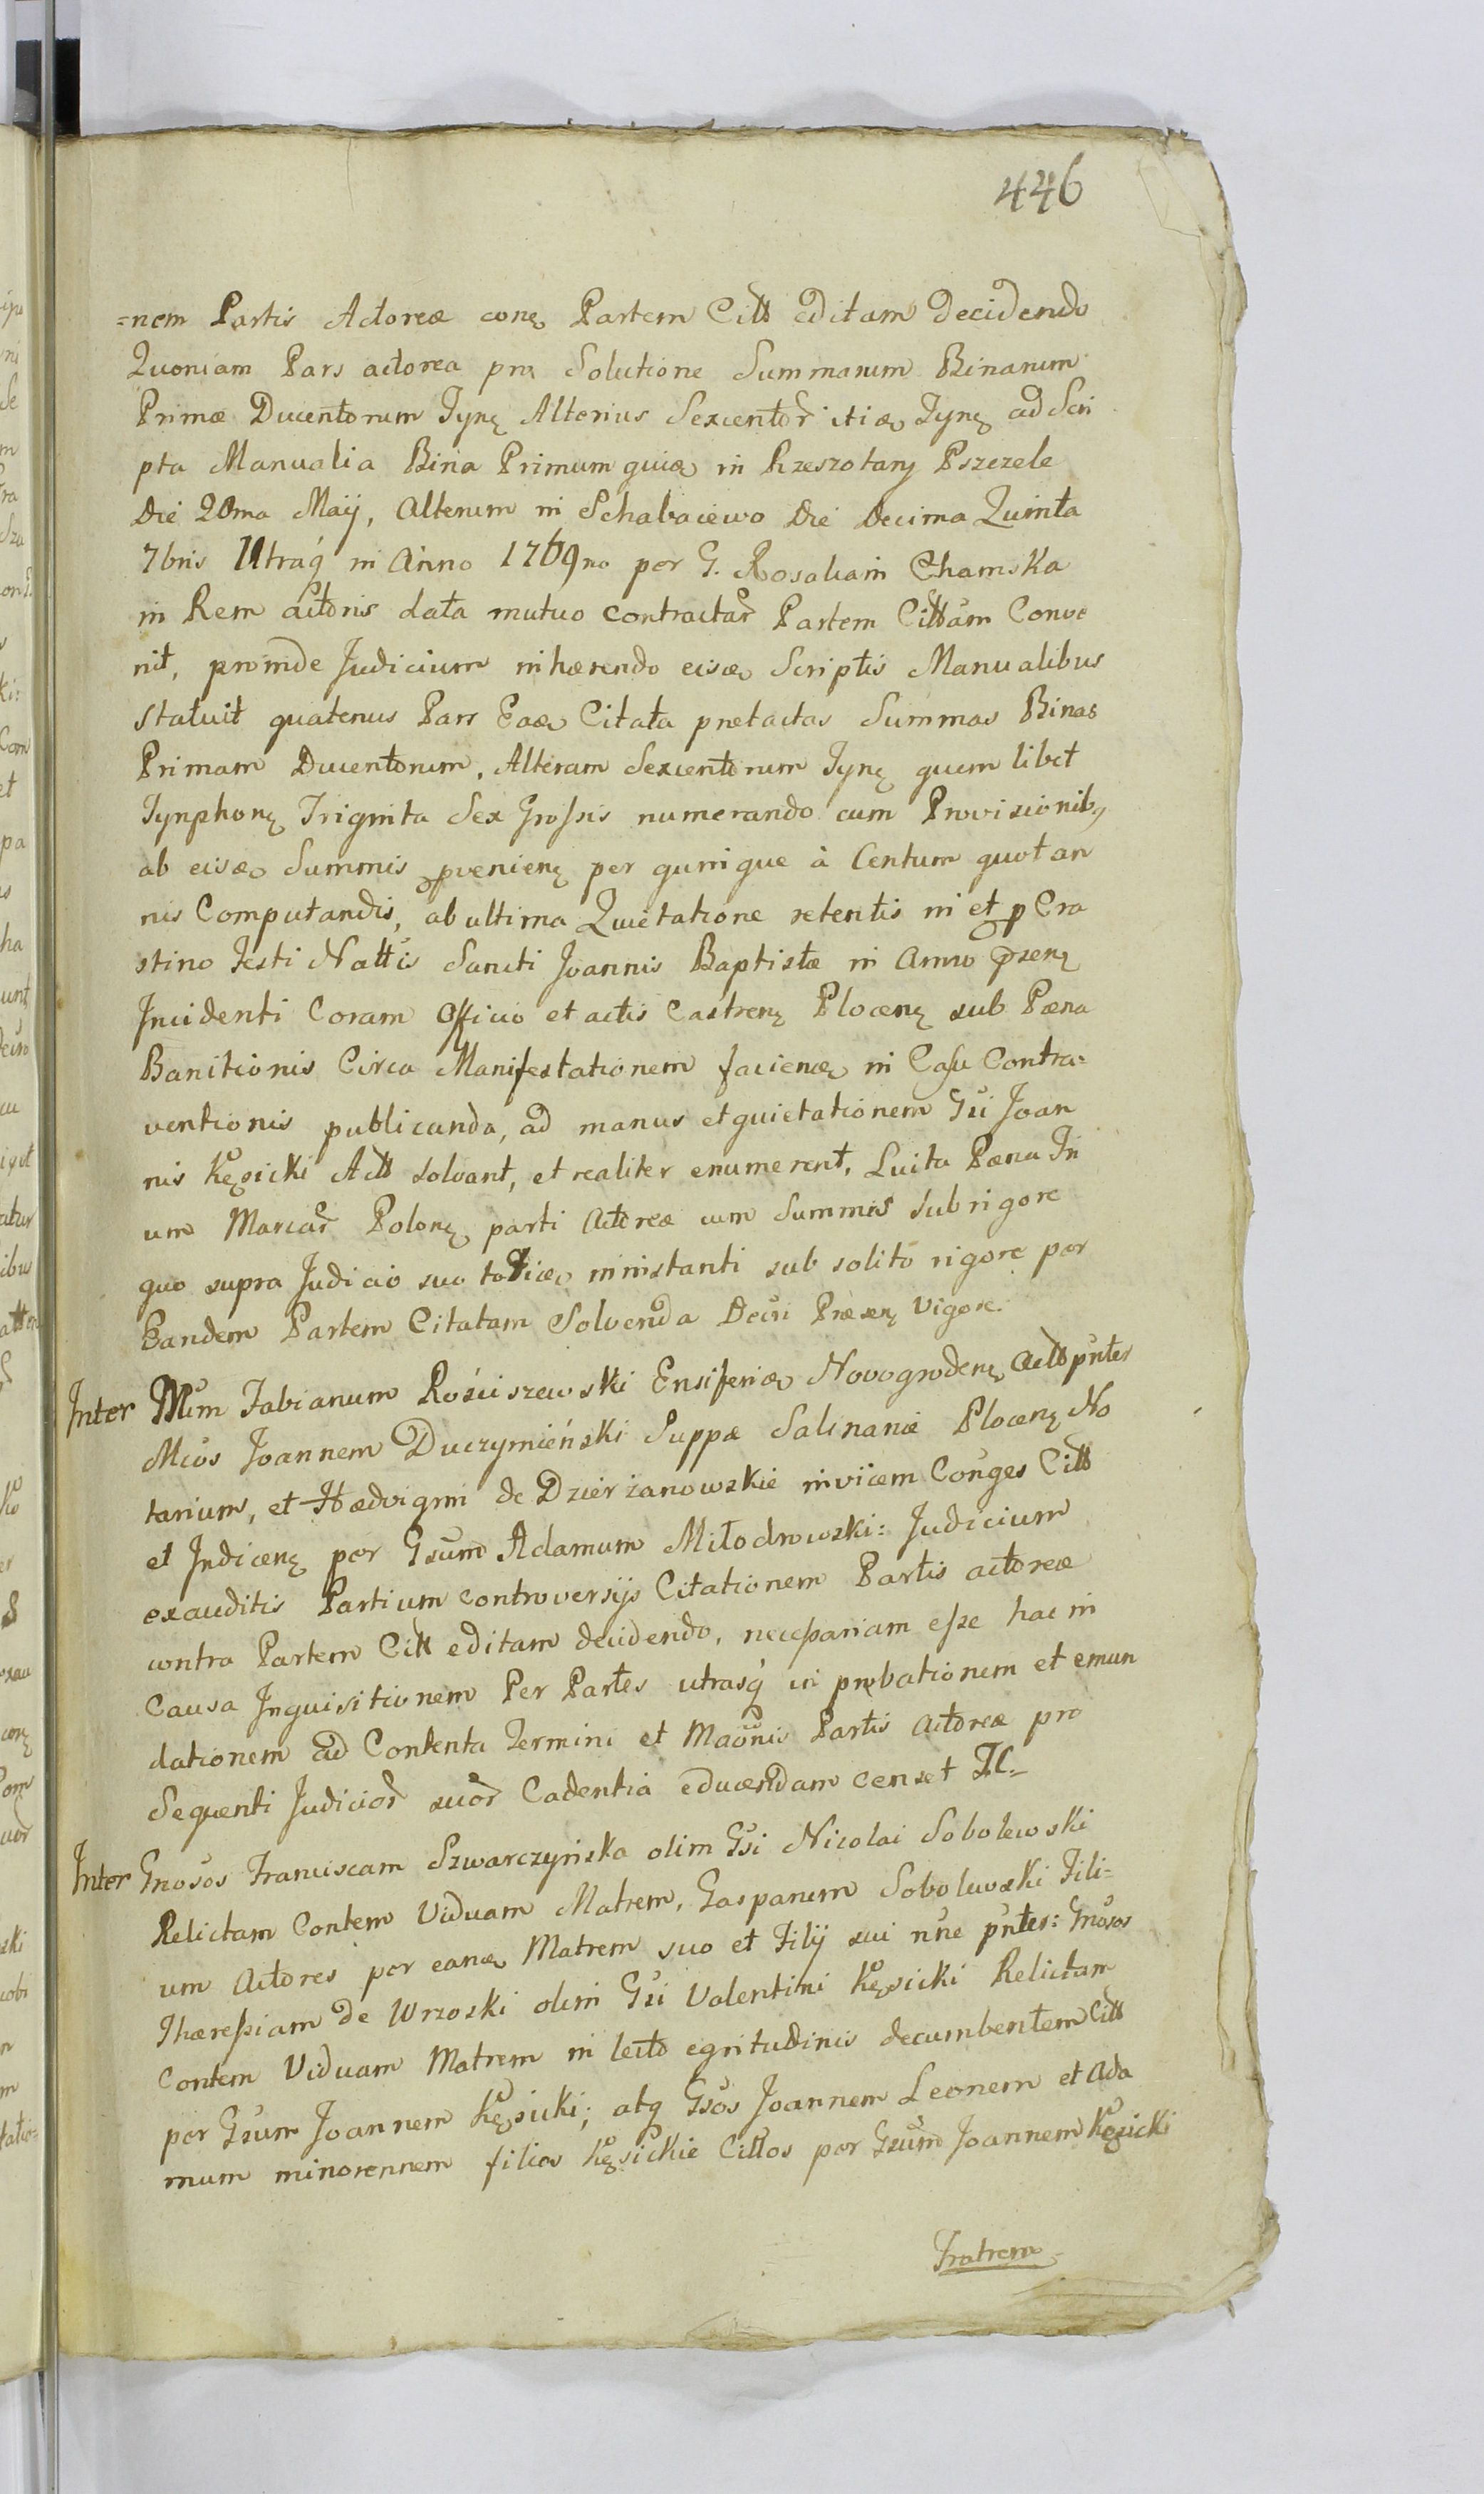 446
=nem Partis Actoreæ conę Partem Citt editam decidendo
Quoniam Pars actorea pro Solutione Summarum Binarum
Primæ Ducentorum Tynę Alterius Sexcentor̃ itiæ Tynę ad Scri
pta Manualia Bina Primum quiæ in Rzeszotary Pszczele
Die 20ma Maij, Alterum in Schabaiewo Die Decima Quinta
7bris Utraq́ in Anno 1769no per G. Rosaliam Chamska
in Rem actoris data mutuo contractar̃ Partem Cittam Conve
nit, proinde Judicium inhærendo eisæ Scriptis Manualibus
statuit quatenus Pars Eaæ Citata prætactas Summas Binas
Primam Ducentorum, Alteram Sexcentorum Tynę quem libet
Tynphonę Triginta Sex Grossis numerando cum Provisionibꝫ
ab eisæ Summis pvenienę per quinque à Centum quotan
nis Computandis, ab ultima Quietatione retentis in et p Cra
stino Festi Nattis Sancti Joannis Baptistæ in Anno Prsenę
Incidenti Coram Officio et actis Castrenę Plocenę sub Pæna
Banitionis Circa Manifestationem facienæ in Casu Contra=
ventionis publicanda, ad manus et quietationem Gsi Joan
nis Kęsicki Actt solvant, et realiter enumerent, Luita Pæna Tri
um Marcar̃ Polonę parti Actoreæ cum Summis sub rigore
quo supra Judicio suo totiæ instanti sub solito rigore per
Eandem Partem Citatam Solvenda Decri Præsenę Vigore.
Inter Mcum Fabianum Rościszewski Ensiferiæ Novogrodenę Actt pntes
Mcos Joannem Duczymieński Suppæ Salinariæ Plocenę No
tarium, et Hædvigim de Dzierżanowskie invicem Conges Citt
et Indicenę per Gsum Adamum Miłodrowski: Judicium
exauditis Partium controversijs Citationem Partis actoreæ
contra Partem Citt editam decidendo, necessariam esse hac in
Causa Inquisitionem Per Partes utrasq́ in probationem et emun
dationem ad Contenta Termini et Maonis Partis Actoreæ pro
Sequenti Judicior̃ suor̃ Cadentia educendam censet
Inter Gnosos Franciscam Szwarczyńska olim Gsi Nicolai Sobolewski
Relictam Contem Viduam Matrem, Gasparum Sobolewski Fili=
um Actores per eanæ Matrem suo et Filij sui nne pntes: Gnosos
Thæressiam de Wrzoski olim Gsi Valentini Kęsicki Relictam
Contem Viduam Matrem in lecto egritudinis decumbentem Citt
per Gsum Joannem Kęsicki; atq Gsos Joannem Leonem et Ada
mum minorennem filios Kęsickie Cittos per Gsum Joannem Kęsicki
Fratrem